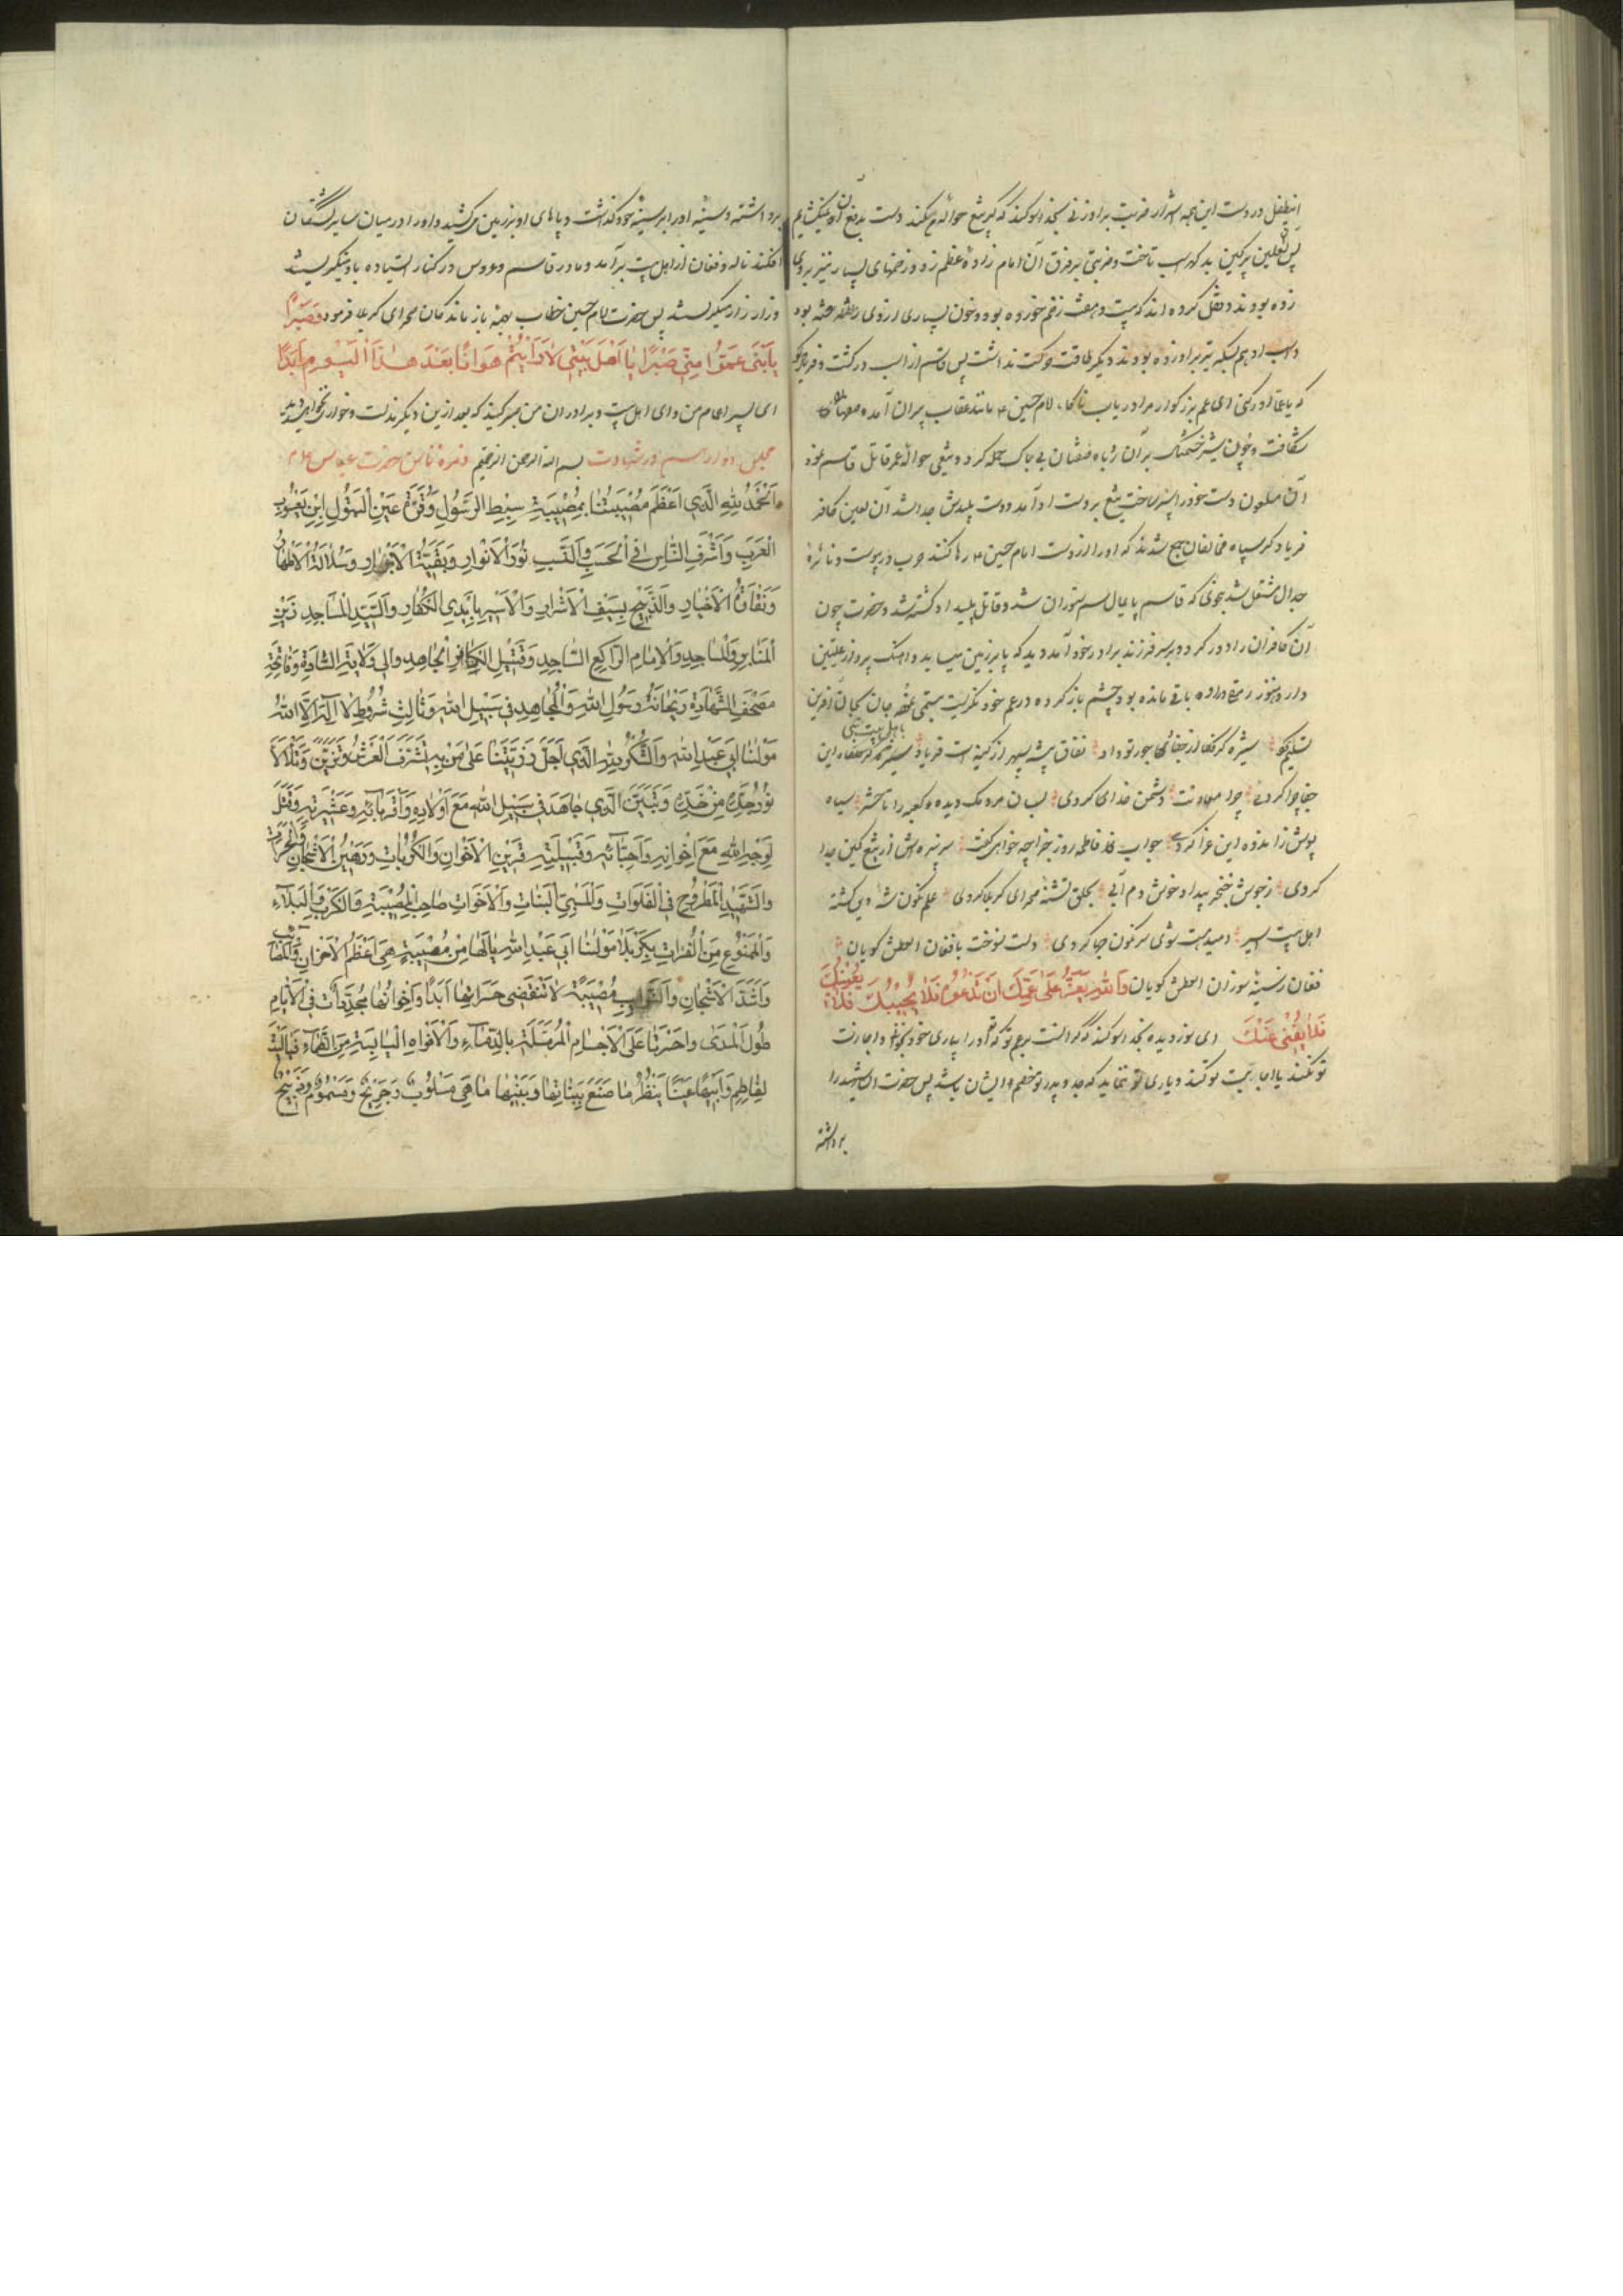 اینطفل در دست این همه اشرار ضربت برادر زنی بخدا سوکند که اگر تیغ حواله من کند دست بدفع آن نمیکشایم
پس آن لعین پرکین بد کهر اسب تاخت و ضربتی بر فرق آن امام زاده اعظم زد و زخمهای بسیار نیز بر وی
زده بودند و نقل کرده اند که بیست و هفت زخم خورده بود و خون بسیاری از وی رفته بود
و اسب او هم بسکه تیر بر او زده بودند دیکر طاقت حرکت نداشت پس قاسم از اسب در کشت و فریاد
که یا عماه ادرکنی ای عم بزرکوار مرا دریاب ناکاه امام حسین ع مانند عقاب پران آمده صفها
شکافت و چون شیر خشمناک بر آن روباه صفتان بی باک حمله کرد و تیغی حواله عمر قاتل قاسم نمود
آن ملعون دست خود را سپر ساخت تیغ بر دست او آمد و دست پلیدش جدا شد آن لعین کافر
فریاد کرد سپاه مخالفان جمع شدند که او را از دست امام حسین ع رها کنند حرب در پیوست و نائره
جدال مشتعل شد بنحوی که قاسم پامال سم ستوران شد و قاتل پلید او کشته شد و حضرت چون
آن کافران را دور کرد و بر سر فرزند برادر خود آمد دید که پا بر زمین میساید و آهنک پرواز علیین
دارد و هنوز رمقی در او باقی مانده بود چشم باز کرده در عم خود نکریست تبسمی نمود جان بجان آفرین
تسلیم کرد
جفا چرا کردی چرا معاونت دشمن خدای کردی بسان مردمک دیده کعبه را سیاه
پوش ز اندوه این عزا کردی جواب فاطمه روز جزا چه خواهی کفت سر از تیغ کین جدا
کردی ز جوش خنجر بیداد خوش دم آبی بحلق تشنه صحرای کربلا کردی علم نکون شد
اهل بیت اسیر امید هست شوی سرنکون حیا کردی دلت نسوخت بافغان العطش کویان
فغان ز سینه سوزان العطش کویان والله یعز علی عمک ان تدعوه فلا یجیبک فلا یعینک
فلا یغنی عنک ای نور دیده بخدا سوکند که کرانست بر عم تو که او را بیاری خود بخوانی و اجابت
تو نکند یا اجابت کند و یاری تو ننماید که جد و پدر تو خصم ایشان باشد پس حضرت آن شهید را
برداشته
برداشته و سینه او را بر سینه خود کذاشت و پاهای او بر زمین میکشید و او را در میان سایر کشتکان
افکند ناله و فغان از اهل بیت برآمد و مادر قاسم و عروس در کنار ایستاده باو میکریستند
و زار زار میکریستند پس حضرت امام حسین خطاب بهمه بازماندکان صحرای کربلا فرمود فصبرا
یا بنی عمومتی صبرا یا اهل بیتی لا رایتم هوانا بعد هذا الیوم ابدا
ای پسر اعمام من و ای اهل بیت و برادران من صبر کنید که بعد ازین دیکر مذلت و خواری نخواهید دید
مجلس دوازدهم در شهادت بسم الله الرحمن الرحیم حضرت عباس ع
اَلْحَمْدُ لِلّٰهِ الَّذِی اَعْظَمَ مُصِیبَتَنَا بِمُصِیبَةِ سِبْطِ الرَّسُولِ وَقُرَّةِ عَیْنِ الْبَتُولِ ابْنِ یَعْسُوبِ
الْعَرَبِ وَاَشْرَفِ النَّاسِ فِی الْحَسَبِ وَالنَّسَبِ نُورِ الْاَنْوَارِ وَبَقِیَّةِ الْاَبْرَارِ وَسُلَالَةِ الْاَطْهَارِ
وَنُقَاوَةِ الْاَخْیَارِ وَالذَّبِیحِ بِسَیْفِ الْاَشْرَارِ وَالْاَسِیرِ بِاَیْدِی الْکُفَّارِ وَالسَّیِّدِ الْمَاجِدِ زَیْنِ
الْمَنَابِرِ وَالْمَسَاجِدِ وَالْاِمَامِ الرَّاکِعِ السَّاجِدِ وَقَتِیلِ الْکَافِرِ الْجَاهِدِ وَالِی وَلَایَةِ السَّادَةِ وَفَاتِحَةِ
مُصْحَفِ الشَّهَادَةِ رَیْحَانَةِ رَسُولِ اللهِ وَالْمُجَاهِدِ فِی سَبِیلِ اللهِ وَثَالِثِ شُرُوطِ لَا اِلٰهَ اِلَّا اللهُ
مَوْلٰنَا اَبِی عَبْدِ اللهِ وَالشُّکْرُ لِلّٰهِ الَّذِی اَجَلَّ رَزِیَّتَنَا عَلٰی مَنْ بِهِ تَشَرَّفَ الْعَرْشُ وَتَزَیَّنَ وَتَلَأْلَأَ
نُورُ جَدِّهِ مِنْ خَدِّهِ وَتَبَیَّنَ الَّذِی جَاهَدَ فِی سَبِیلِ اللهِ مَعَ اَوْلَادِهِ وَاَقْرِبَائِهِ وَعَشِیرَتِهِ وَقُتِلَ
لِوَجْهِ اللهِ مَعَ اِخْوَانِهِ وَاَحِبَّائِهِ وَقَبِیلَتِهِ قَرِینِ الْاَحْزَانِ وَالْکُرُبَاتِ وَرَهِینِ الْاَشْجَانِ
وَالشَّهِیدِ الْمَطْرُوحِ فِی الْفَلَوَاتِ وَالْمَسْبِیِّ الْبَنَاتِ وَالْاَخَوَاتِ صَاحِبِ الْمُصِیبَةِ وَالْکَرْبِ وَالْبَلَاءِ
وَالْمَمْنُوعِ مِنَ الْفُرَاتِ بِکَرْبَلَا مَوْلٰنَا اَبِی عَبْدِ اللهِ یَا لَهَا مِنْ مُصِیبَةٍ هِیَ اَعْظَمُ الْاَحْزَانِ وَالْمَصَائِبِ
وَاَشَدُّ الْاَشْجَانِ وَالنَّوَائِبِ مُصِیبَةٌ لَا تَنْقَضِی حَسَرَاتُهَا اَبَدًا وَاَحْزَانُهَا مُجَدَّدَاتٌ فِی الْاَیَّامِ
طُولَ الْمَدٰی وَاحَسْرَتَا عَلَی الْاَجْسَامِ الْمُرَمَّلَةِ بِالدِّمَاءِ وَالْاَفْوَاهِ الْیَابِسَةِ مِنَ الظَّمَاءِ فَیَا لَیْتَ
لِفَاطِمَ وَاَبِیهَا عَیْنًا یَنْظُرُ مَا صُنِعَ بِبَنَاتِهَا وَبَنِیهَا مَا هِیَ مَسْلُوبٌ وَجَرِیحٌ وَمَسْمُومٌ وَذَبِیحٌ